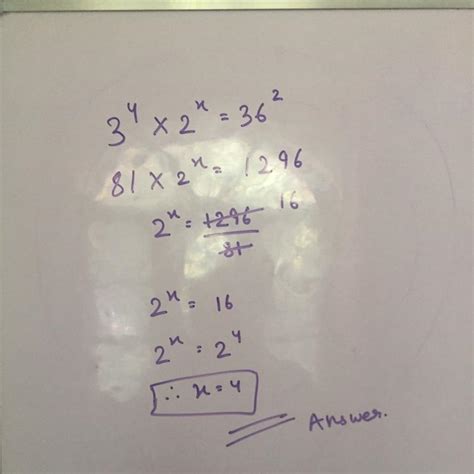 3⁴ × 2ˣ = 36²
81 × 2ˣ = 1296
2ˣ = 1296/81 16
2ˣ = 16
2ˣ = 2⁴
∴ x = 4
Answer.